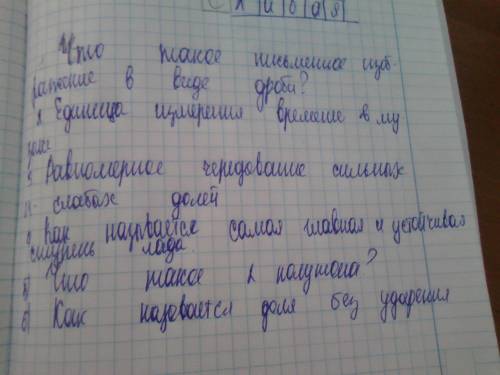 с х и в а я
Что такое писменное изб-
ражение в виде дроби?
2 Единица измерения времение в му
зыке
3 Равномерное чередование сильных
и слабах долей
4 Как называется самая главная и устойчивая
ступень лада
5) Что такое 2 полутона?
6) Как называется доля без ударения